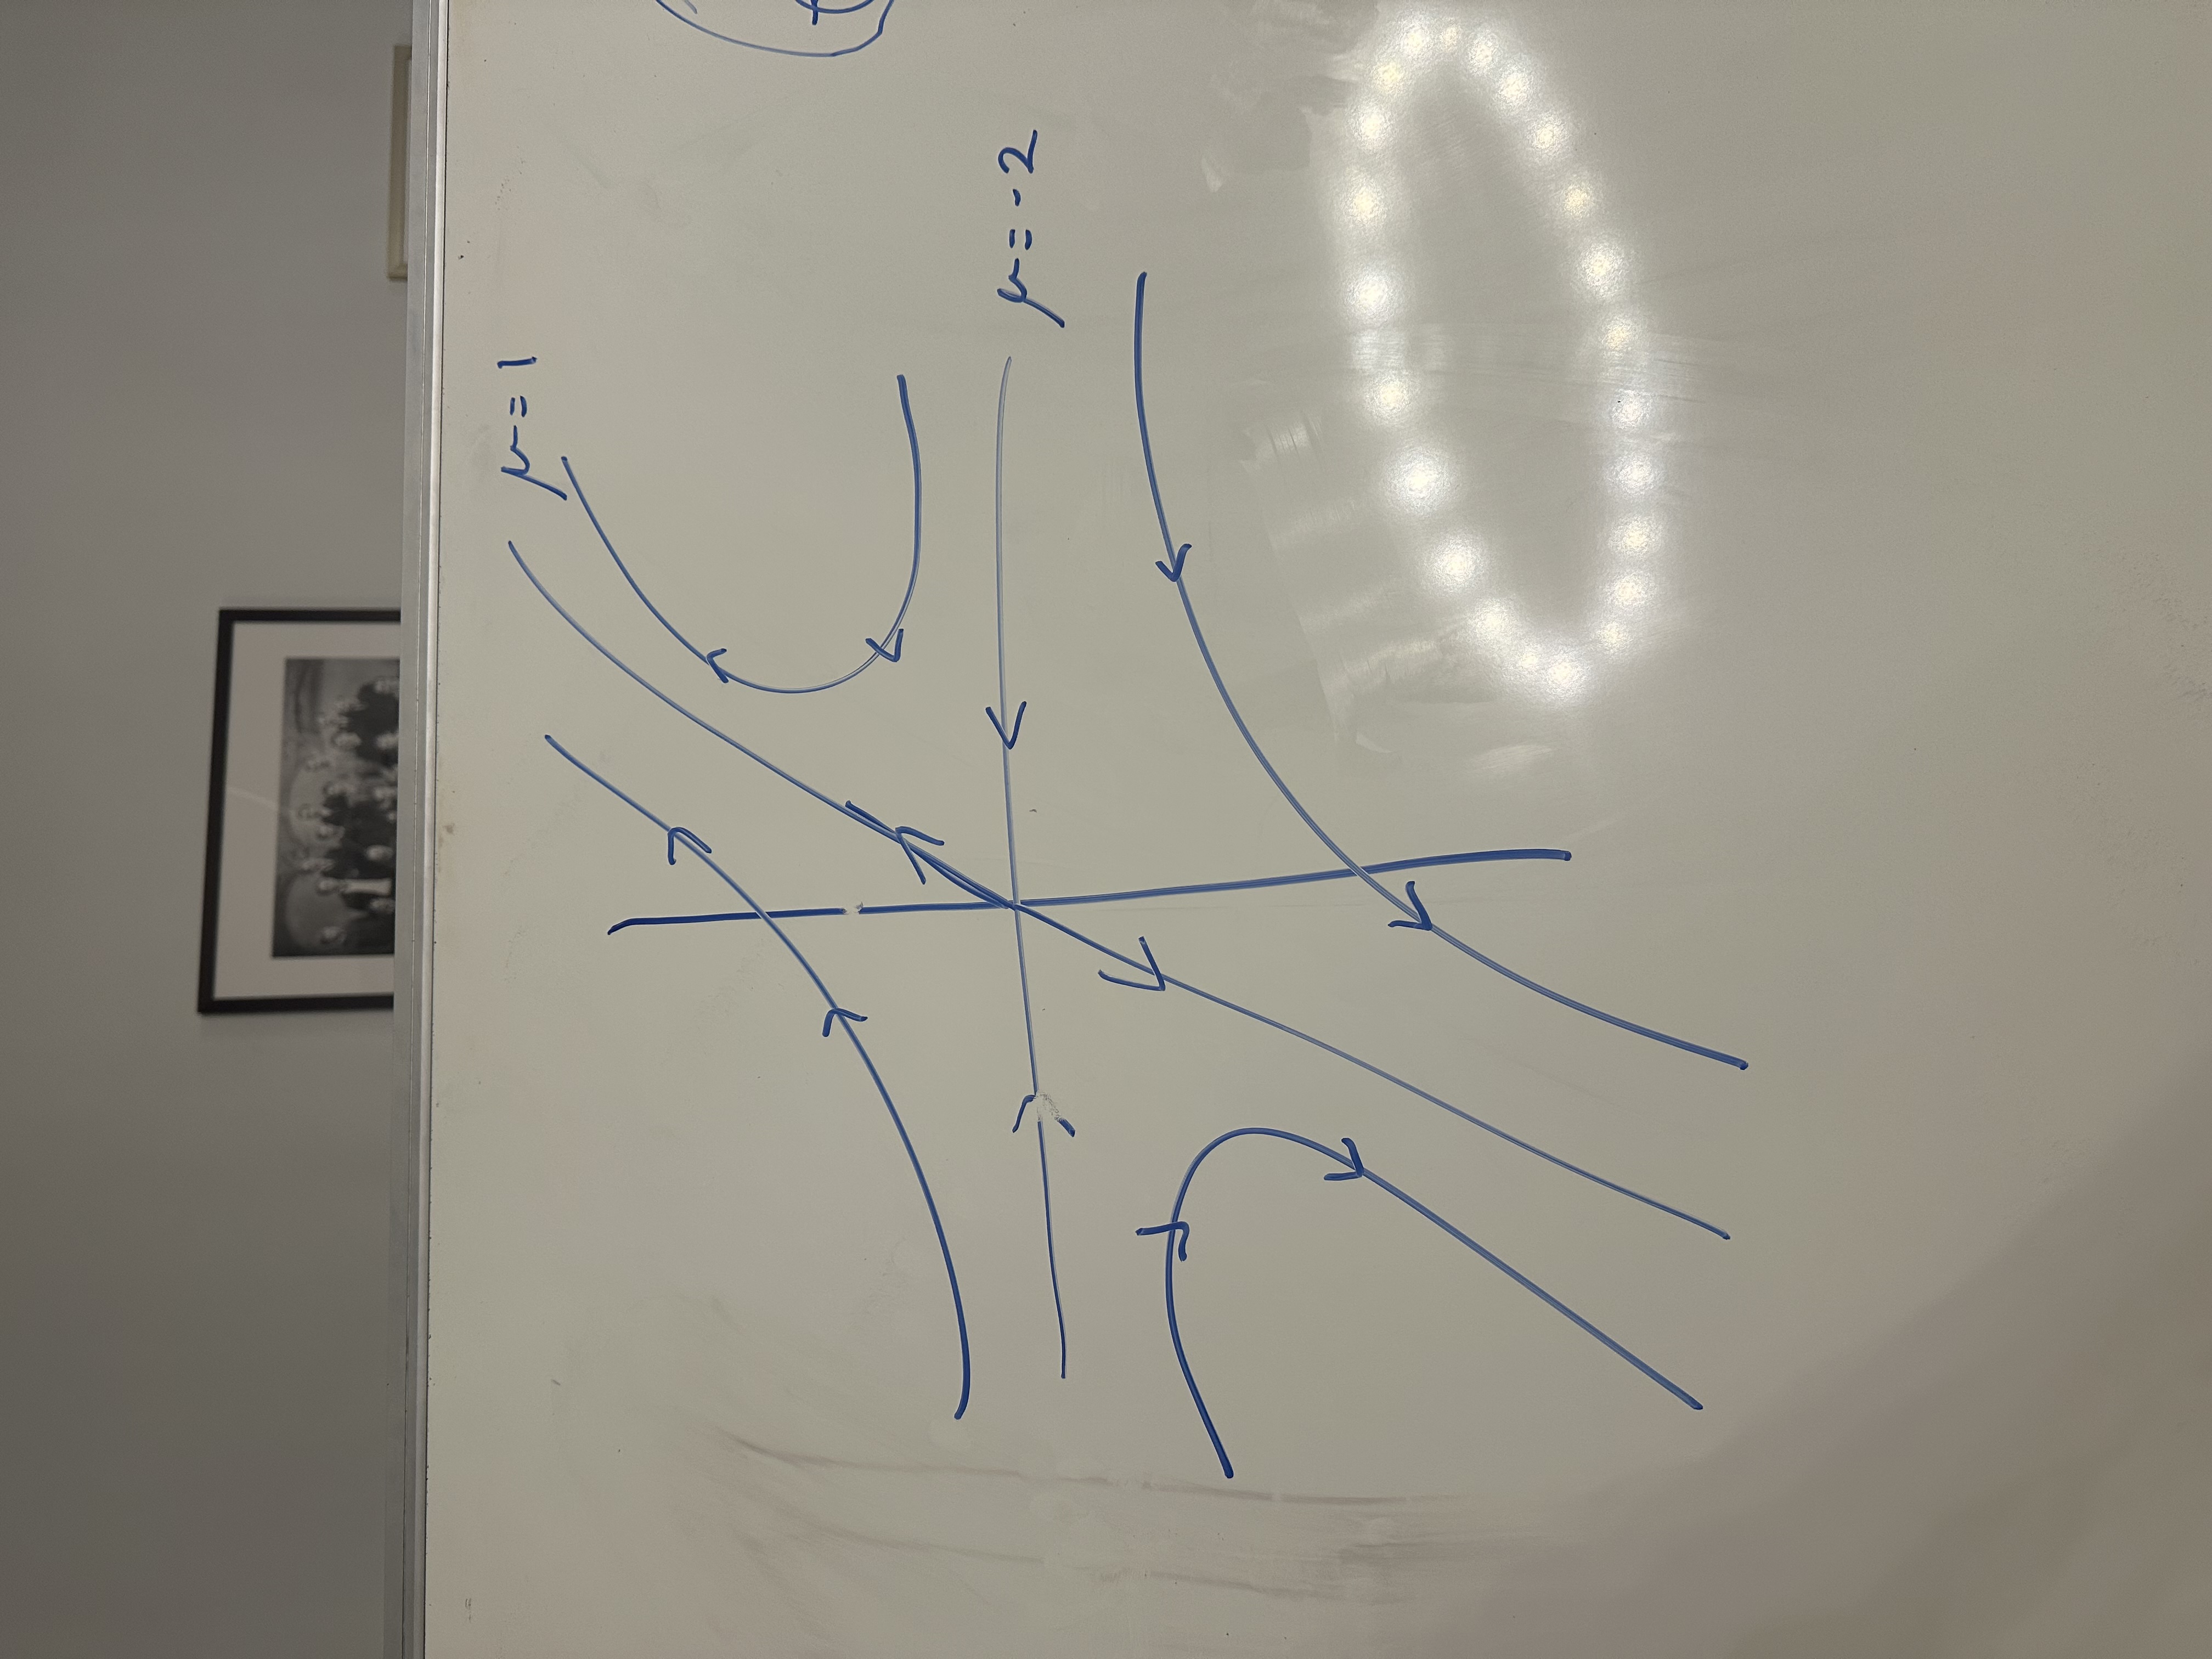 μ=1
μ=-2